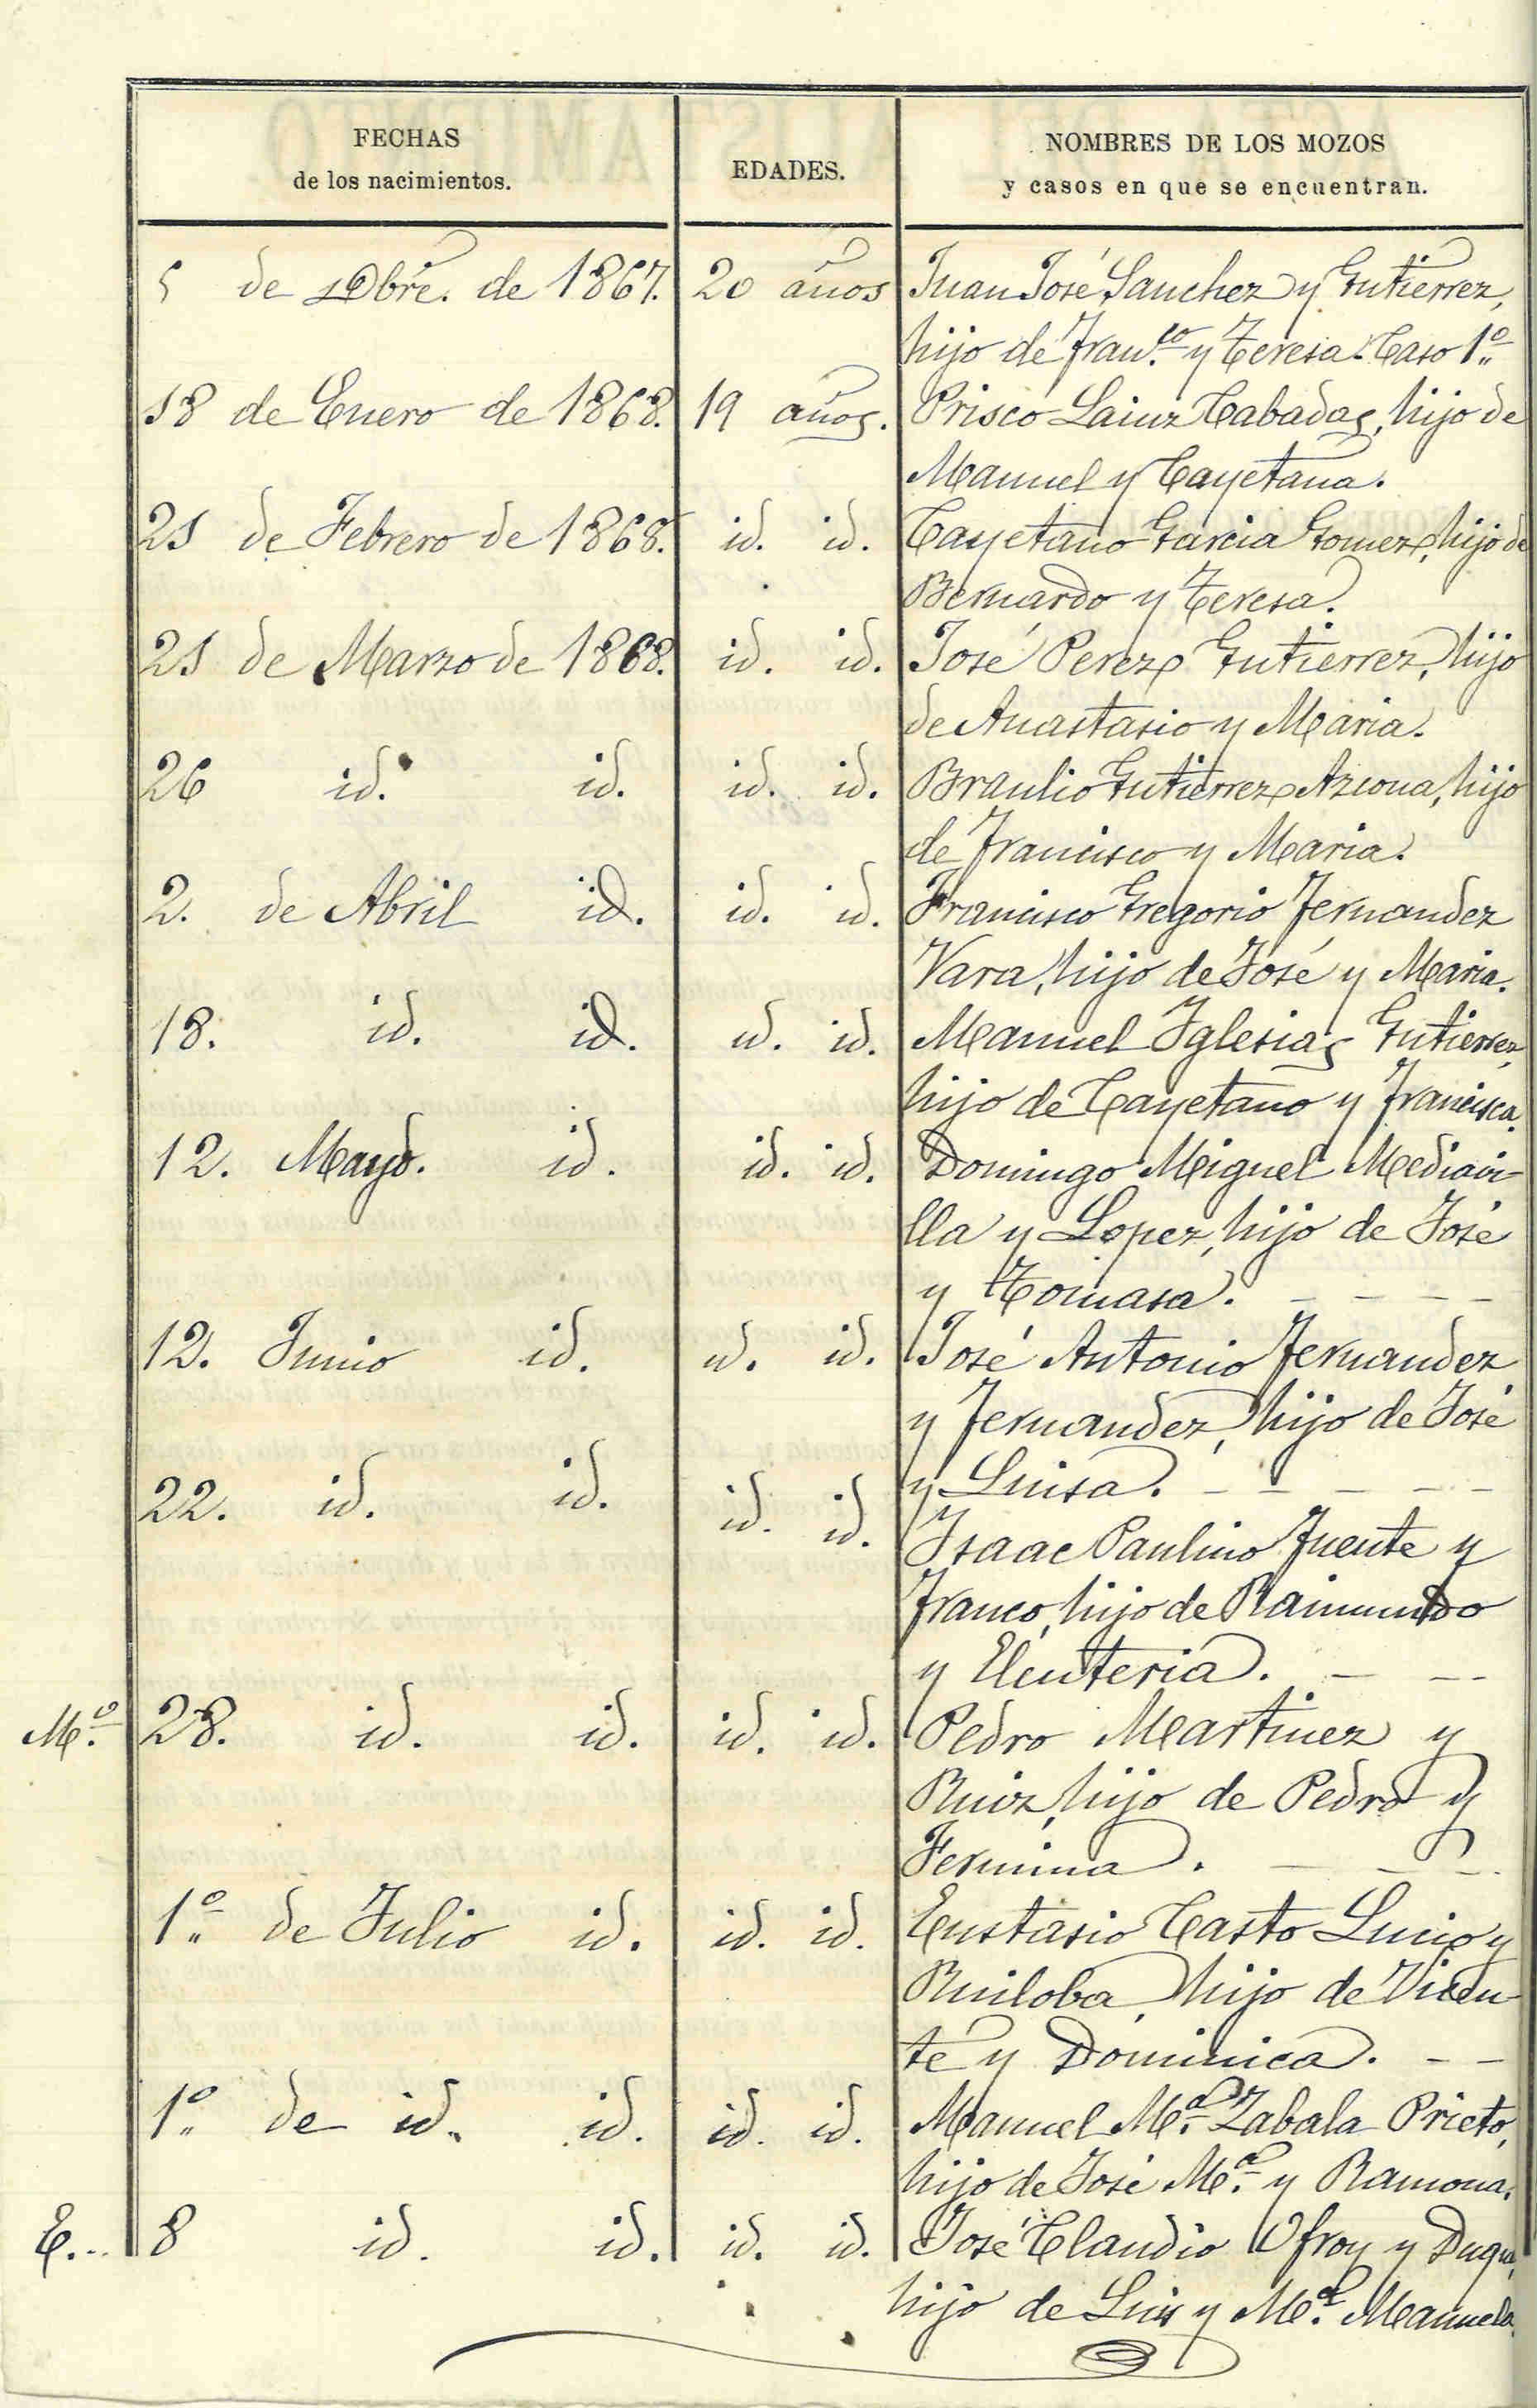 FECHAS
de los nacimientos.
EDADES.
NOMBRES DE LOS MOZOS
y casos en que se encuentran.
5 de Dbre. de 1867. 20 años Juan José Sanchez y Gutierrez,
hijo de Fran.co y Teresa. Caso 1º
18 de Enero de 1868. 19 años. Prisco Lainz Cabadas, hijo de
Manuel y Cayetana.
21 de Febrero de 1868. id. id. Cayetano Garcia Gomez, hijo de
Bernardo y Teresa.
21 de Marzo de 1868. id. id. José Perez Gutierrez, hijo
de Anastasio y Maria.
26 id. id. id. id. Braulio Gutierrez Azcona, hijo
de Francisco y Maria.
2. de Abril id. id. id. Francisco Gregorio Fernandez
Vara, hijo de José y Maria.
18. id. id. id. id. Manuel Iglesias Gutierrez,
hijo de Cayetano y Francisca.
12. Mayo. id. id. id. Domingo Miguel Mediavi-
lla y Lopez, hijo de José
y Tomasa.
12. Junio id. id. id. José Antonio Fernandez
y Fernandez, hijo de José
y Luisa.
22. id. id. id. id. Isaac Paulino Fuente y
Franco, hijo de Raimundo
y Eleuteria.
M.º 28. id. id. id. id. Pedro Martinez y
Ruiz, hijo de Pedro y
Fermina.
1º de Julio id. id. id. Eustasio Casto Lucio y
Ruiloba, hijo de Vicen-
te y Dominica.
1º de id. id. id. id. Manuel M.ª Zabala Prieto,
hijo de José M.ª y Ramona.
E. 8 id. id. id. id. José Claudio Ofroy y Duque,
hijo de Luis y M.ª Manuela.